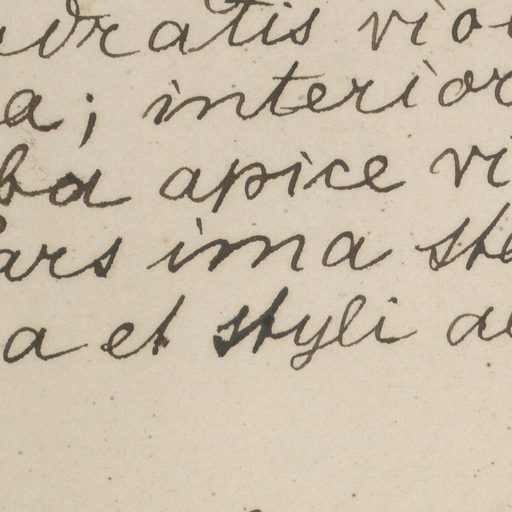 adratis viol
a; interior
ba apice vi
ars ima sta
a et styli al